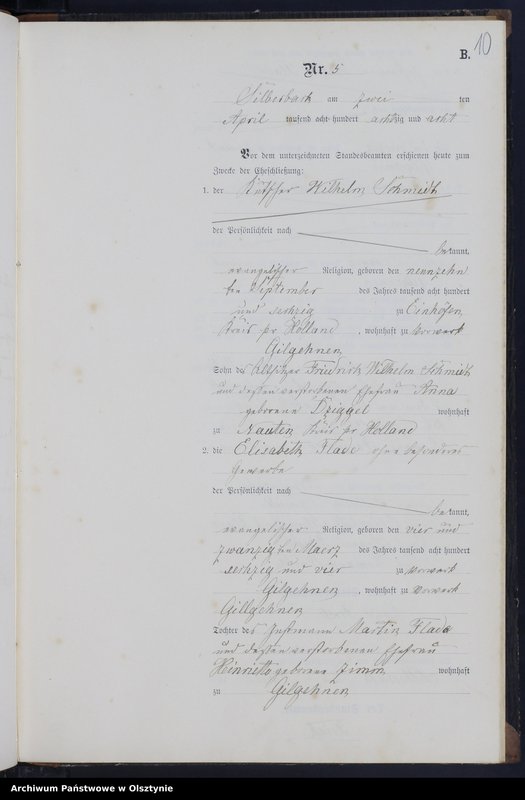 B.
10
Nr. 5
Silberbach am zwei ten
April tausend acht hundert achtzig und acht
Vor dem unterzeichneten Standesbeamten erschienen heute zum
Zwecke der Eheschließung:
1. der Kutscher Wilhelm Schmidt
der Persönlichkeit nach
bekannt,
evangelischer Religion, geboren den neunzehn
ten September des Jahres tausend acht hundert
und sechzig zu Einhöfen
Kreis pr Holland, wohnhaft zu Vorwerk
Gilgehnen
Sohn des Altsitzer Friedrich Wilhelm Schmidt
und dessen verstorbenen Ehefrau Anna
geborene Dziggel wohnhaft
zu Nauten Kreis pr Holland
2. die Elisabeth Flade ohne besonderes
Gewerbe
der Persönlichkeit nach
bekannt,
evangelischer Religion, geboren den vier und
zwanzig ten Maerz des Jahres tausend acht hundert
sechzig und vier zu Vorwerk
Gilgehnen, wohnhaft zu Vorwerk
Gillgehnen
Tochter des Instmann Martin Flade
und dessen verstorbenen Ehefrau
Hinriette geborene Zimm wohnhaft
zu Gilgehnen
Archiwum Państwowe w Olsztynie